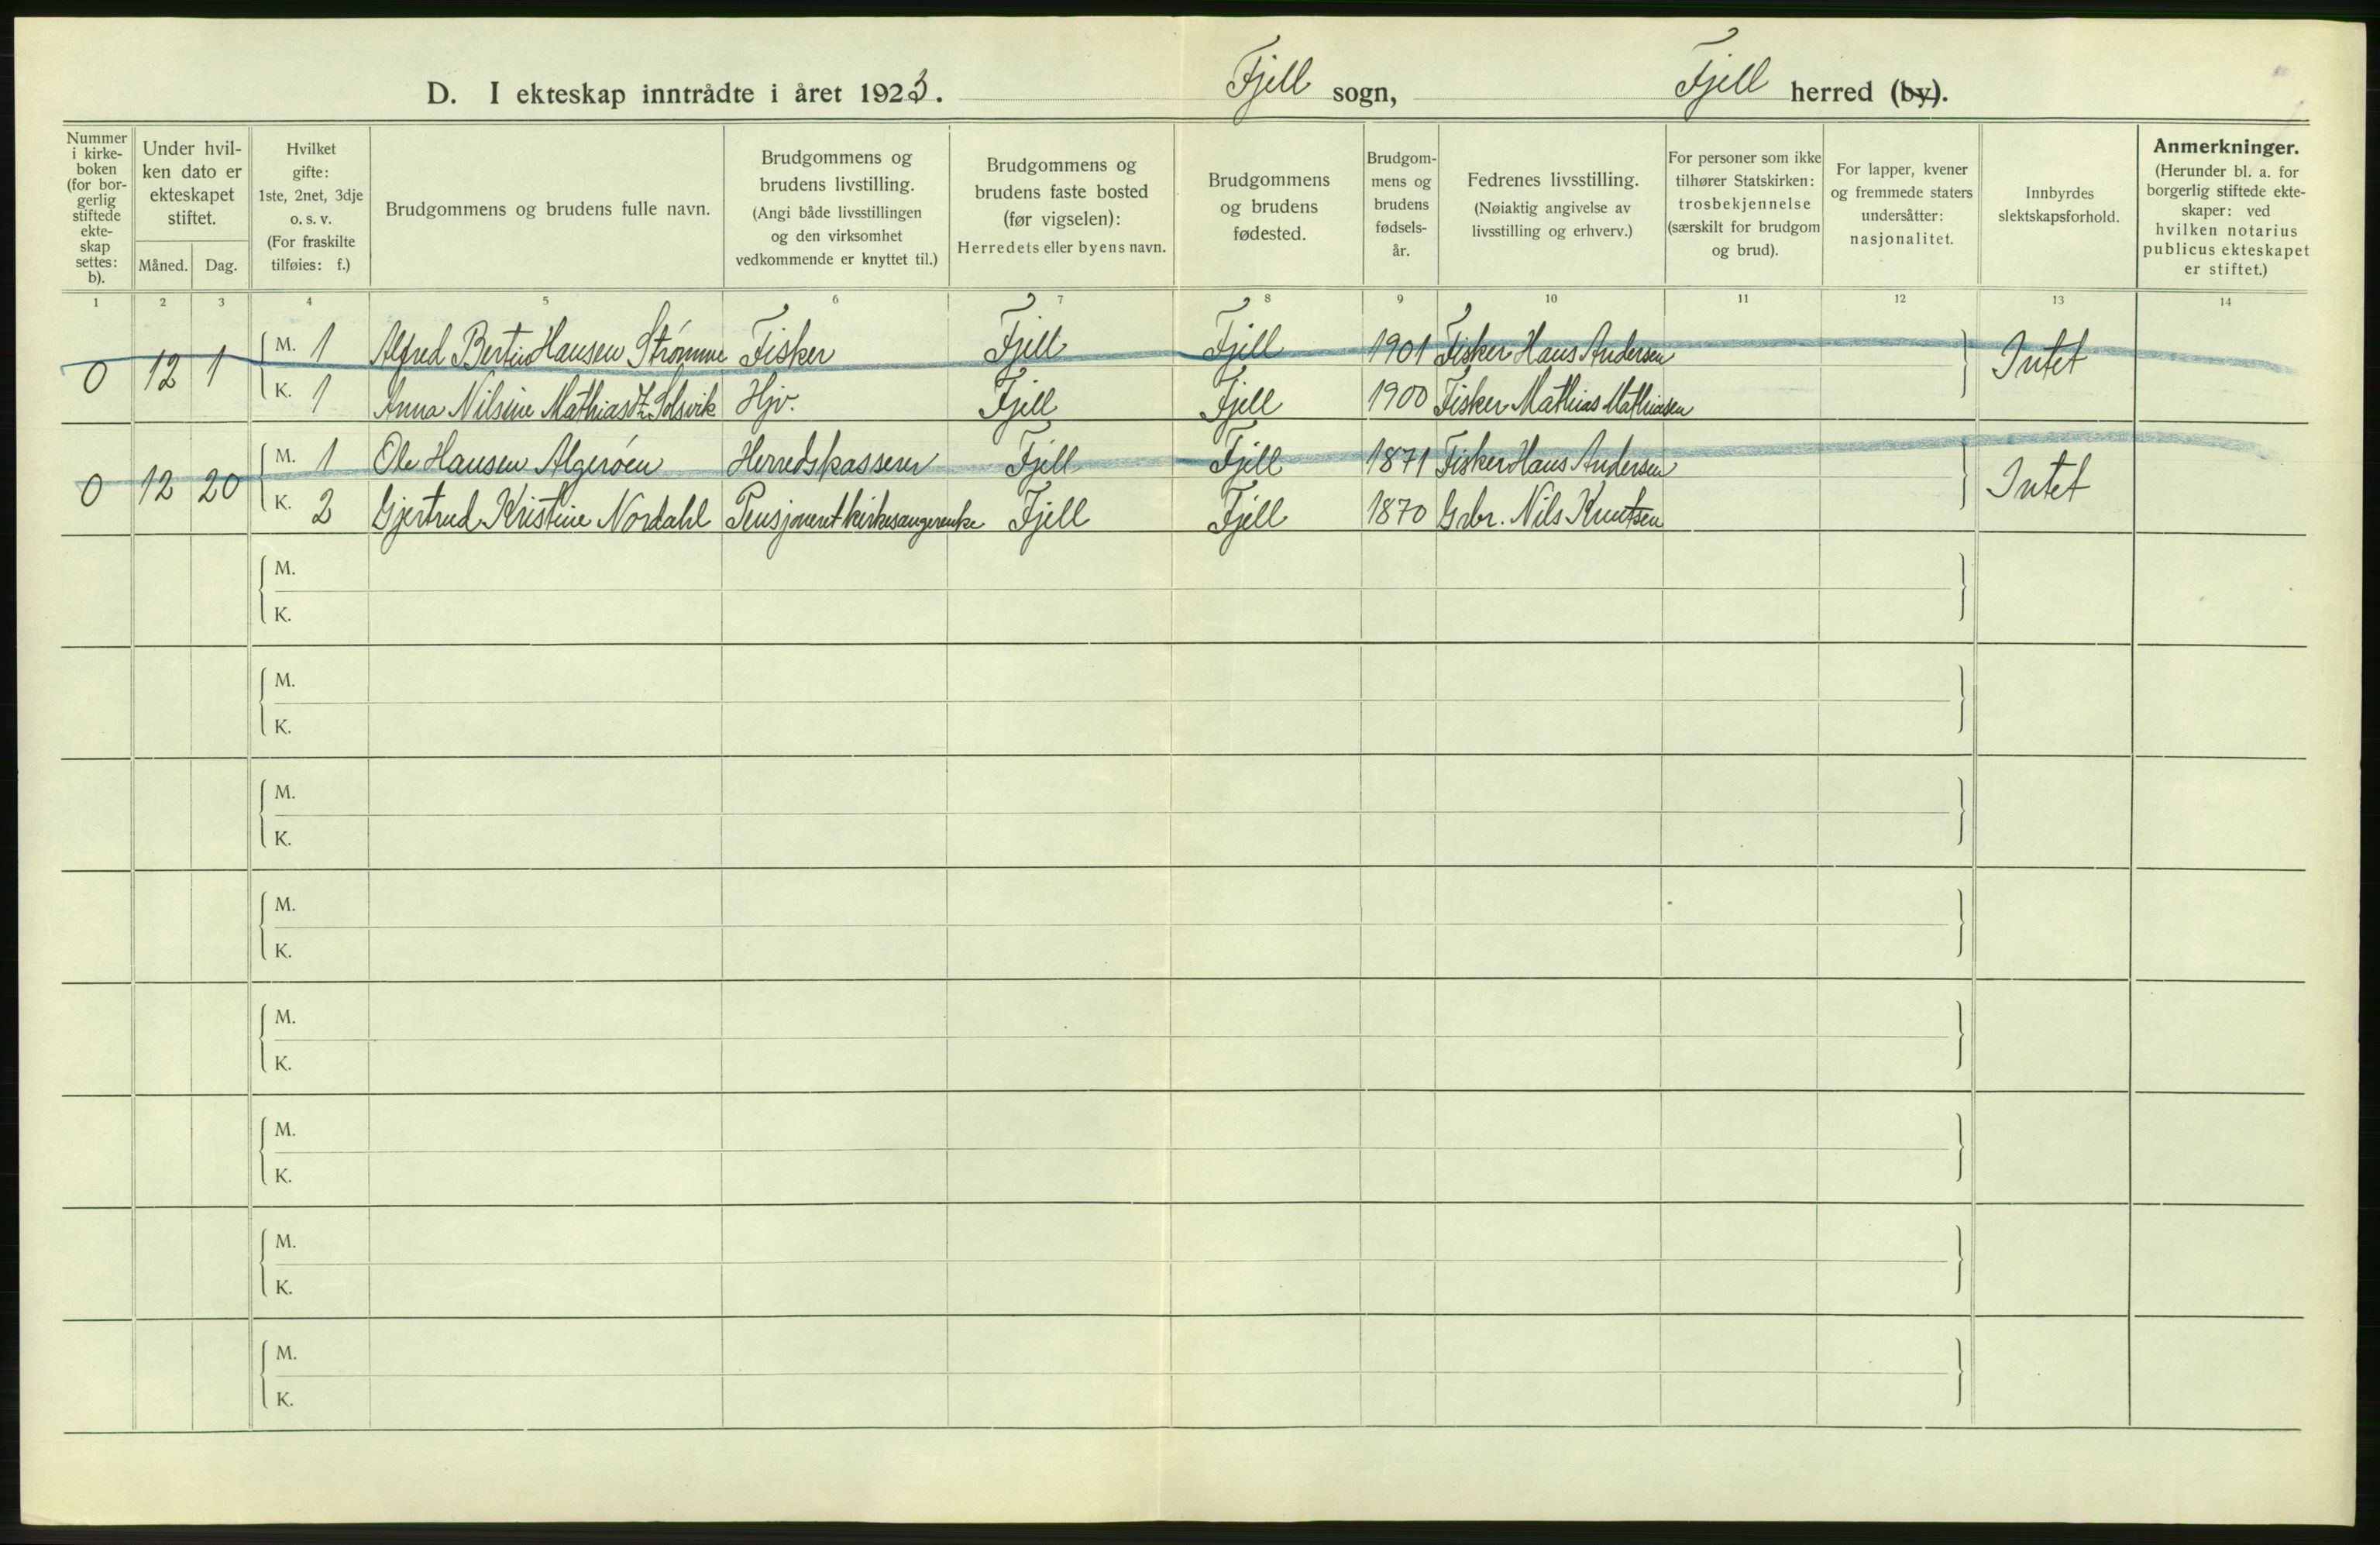 D. I ekteskap inntrådte i året 1923. Fjell sogn, Fjell herred (by).
Nummer i kirke-boken (for bor-gerlig stiftede ekte-skap settes: b).
Under hvil-ken dato er ekteskapet stiftet.
Måned. Dag.
Hvilket gifte: 1ste, 2net, 3dje o. s. v. (For fraskilte tilføies: f.)
Brudgommens og brudens fulle navn.
Brudgommens og brudens livstilling. (Angi både livsstillingen og den virksomhet vedkommende er knyttet til.)
Brudgommens og brudens faste bosted (før vigselen): Herredets eller byens navn.
Brudgommens og brudens fødested.
Brudgom-mens og brudens fødsels-år.
Fedrenes livsstilling. (Nøiaktig angivelse av livsstilling og erhverv.)
For personer som ikke tilhører Statskirken: trosbekjennelse (særskilt for brudgom og brud).
For lapper, kvener og fremmede staters undersåtter: nasjonalitet.
Innbyrdes slektskapsforhold.
Anmerkninger. (Herunder bl. a. for borgerlig stiftede ekte-skaper: ved hvilken notarius publicus ekteskapet er stiftet.)
1 2 3 4 5 6 7 8 9 10 11 12 13 14
0 12 1 M. 1 Alfred Bertin Hansen Strømme Fisker Fjell Fjell 1901 Fisker Hans Andersen Intet
K. 1 Anna Nilsine Mathiasdt. Solsvik Hjv. Fjell Fjell 1900 Fisker Mathias Mathiasen
0 12 20 M. 1 Ole Hansen Algerøen Herredskasserer Fjell Fjell 1871 Fisker Hans Andersen Intet
K. 2 Gjertrud Kristine Nordahl Pensjoneret kirkesangerenke Fjell Fjell 1870 Grbr. Nils Knutsen
M.
K.
M.
K.
M.
K.
M.
K.
M.
K.
M.
K.
M.
K.
M.
K.